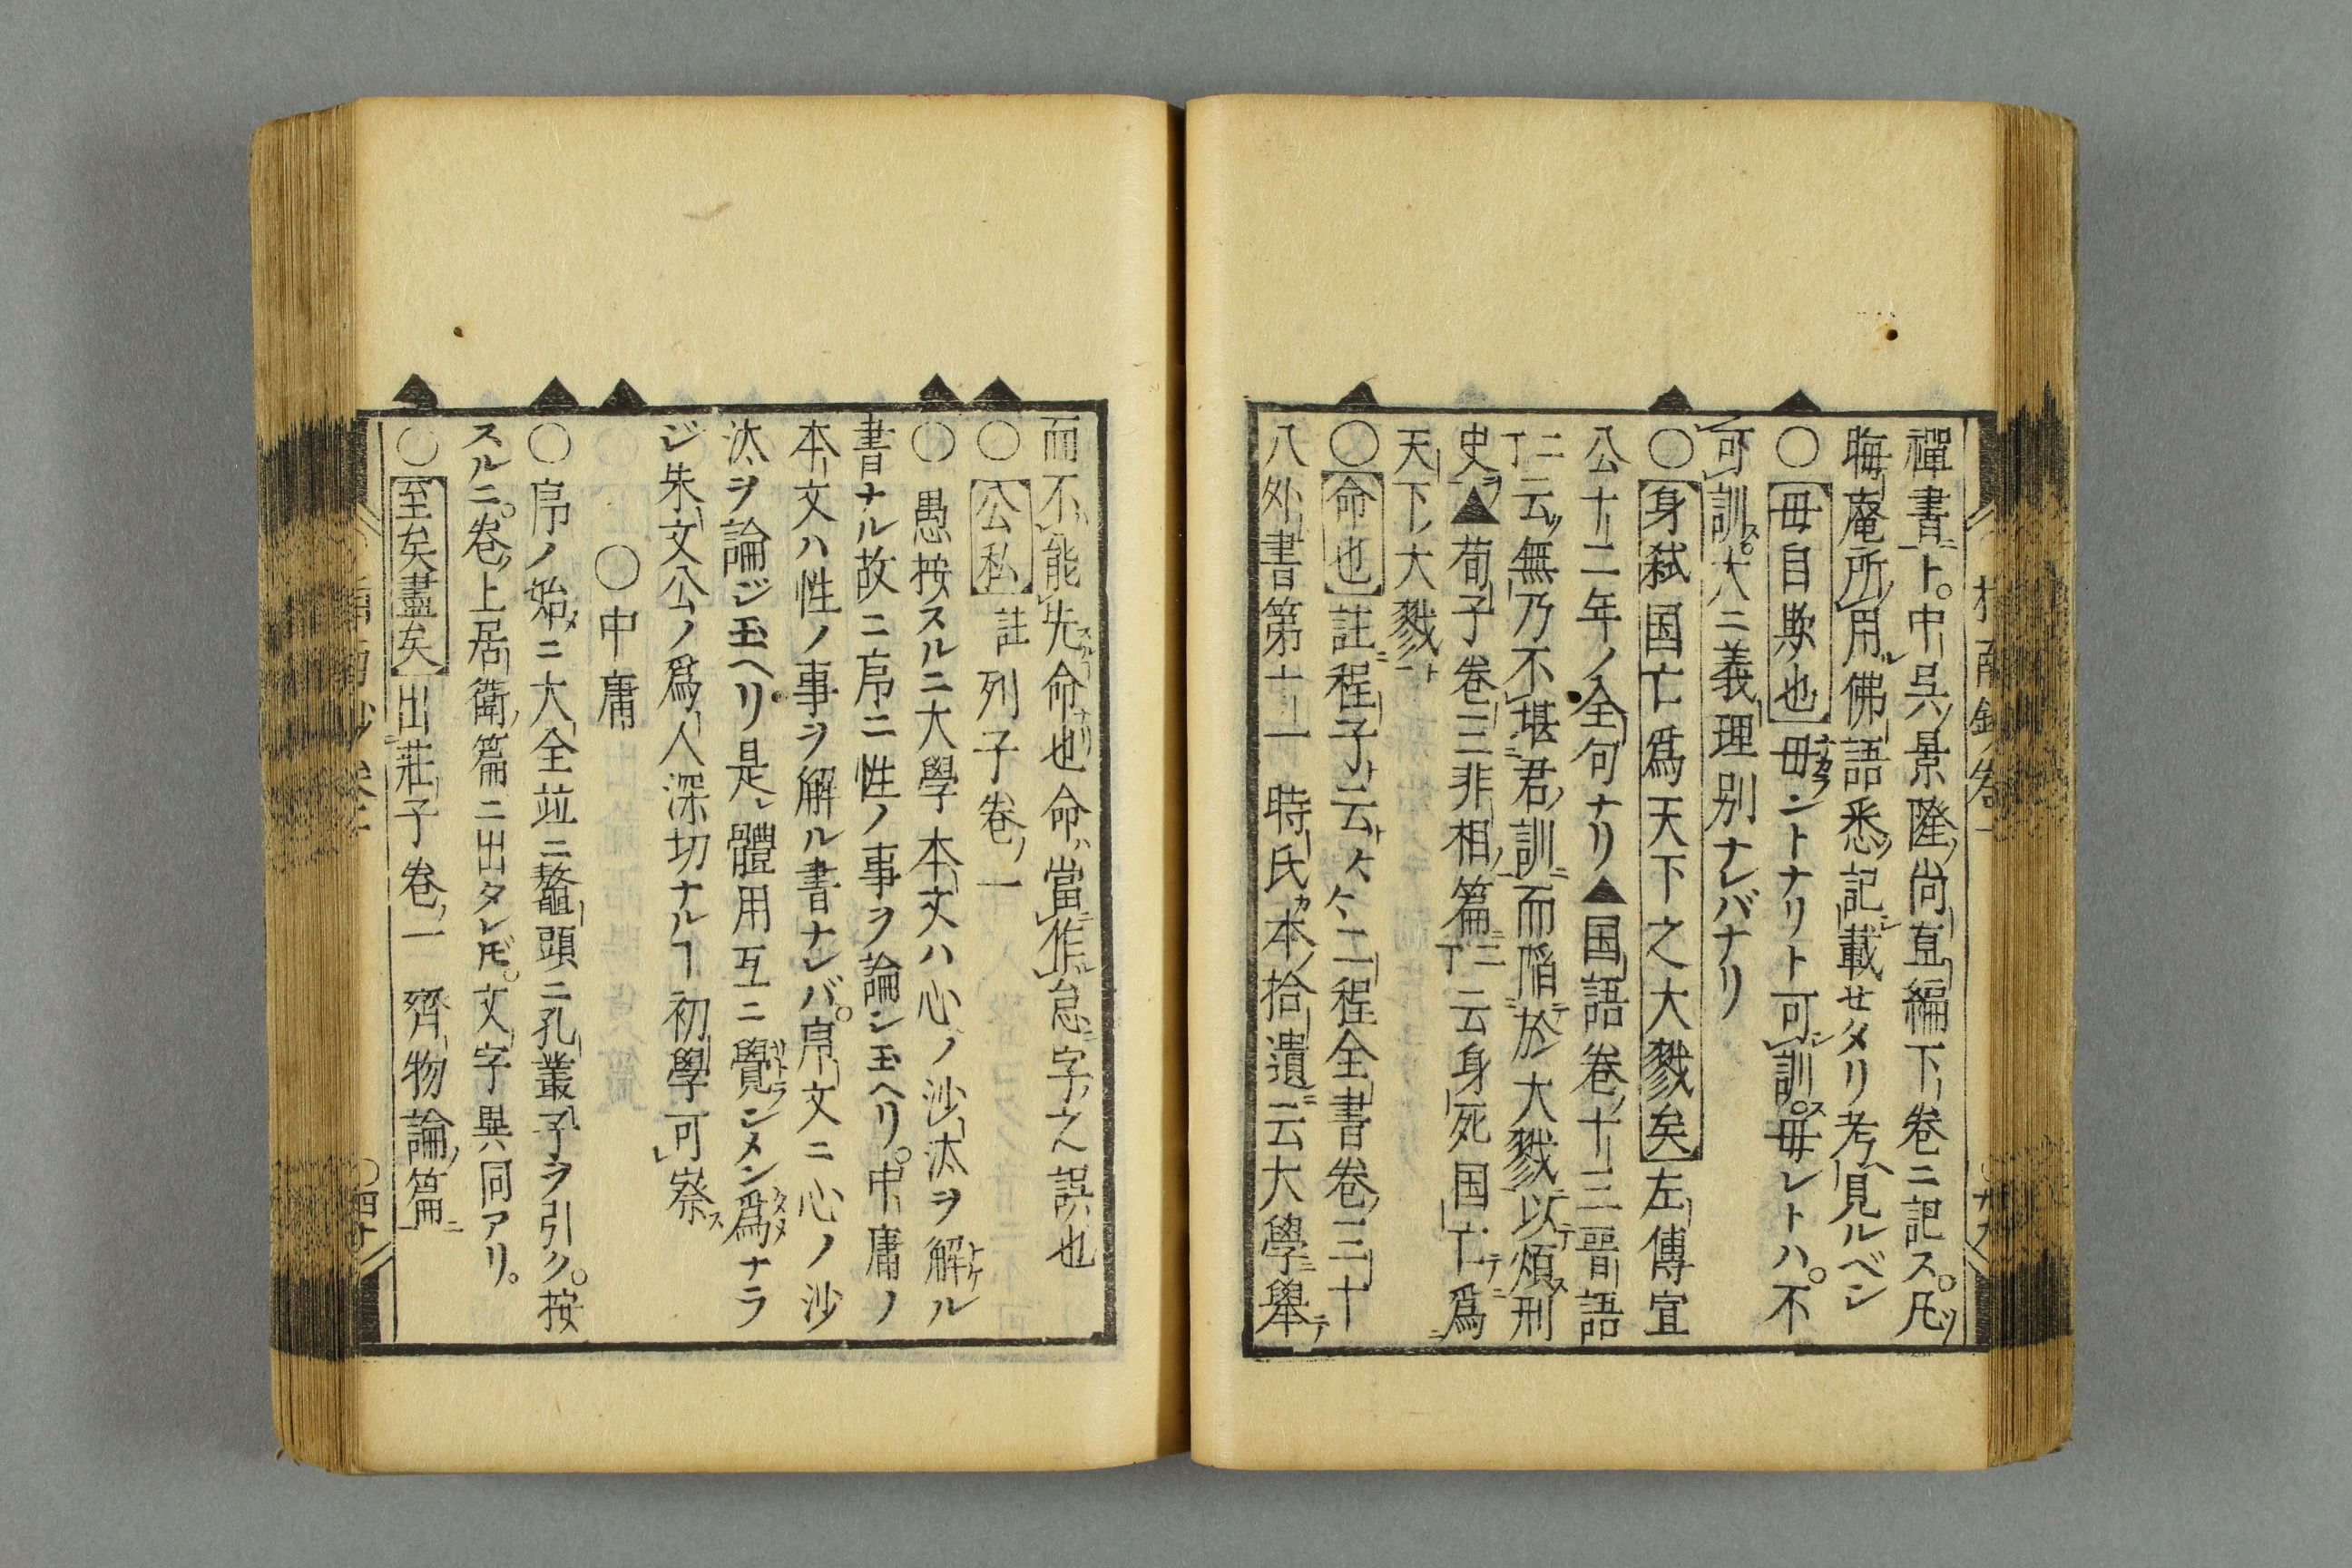 禪書ト。中呉景隆尚直編下巻ニ記ス。凡ソ
晦庵所用佛語悉記載セタリ考見ルベシ
〇毋自欺也毋ントナリト可訓。毋レトハ。不
可訓。大ニ義理別ナレバナリ
〇身弑国亡爲天下之大戮矣左傳宣
公十二年ノ全句ナリ▲国語巻十三晋語
ニ云無乃不堪君訓而陥於大戮以煩刑
史▲荀子巻三非相篇ニ云身死国亡爲
天下大戮
〇命也註程子云云二程全書巻三十
八外書第十一時氏本拾遺云大學舉
而不能先命也命當作怠字之誤也
〇公私註列子巻一
〇愚按スルニ大學本文ハ心ノ沙汰ヲ解ル
書ナル故ニ序ニ性ノ事ヲ論シ玉ヘリ。中庸ノ
本文ハ性ノ事ヲ解ル書ナレバ。序文ニ心ノ沙
汰ヲ論ジ玉ヘリ是レ體用互ニ覺シメン爲ナラ
ジ朱文公ノ爲人深切ナルヿ初學可察
〇中庸
〇序ノ始ニ大全並ニ鼇頭ニ孔叢子ヲ引ク。按
スルニ。巻上居衛篇ニ出タレ𪜈。文字異同アリ。
〇至矣盡矣出莊子巻一齊物論篇